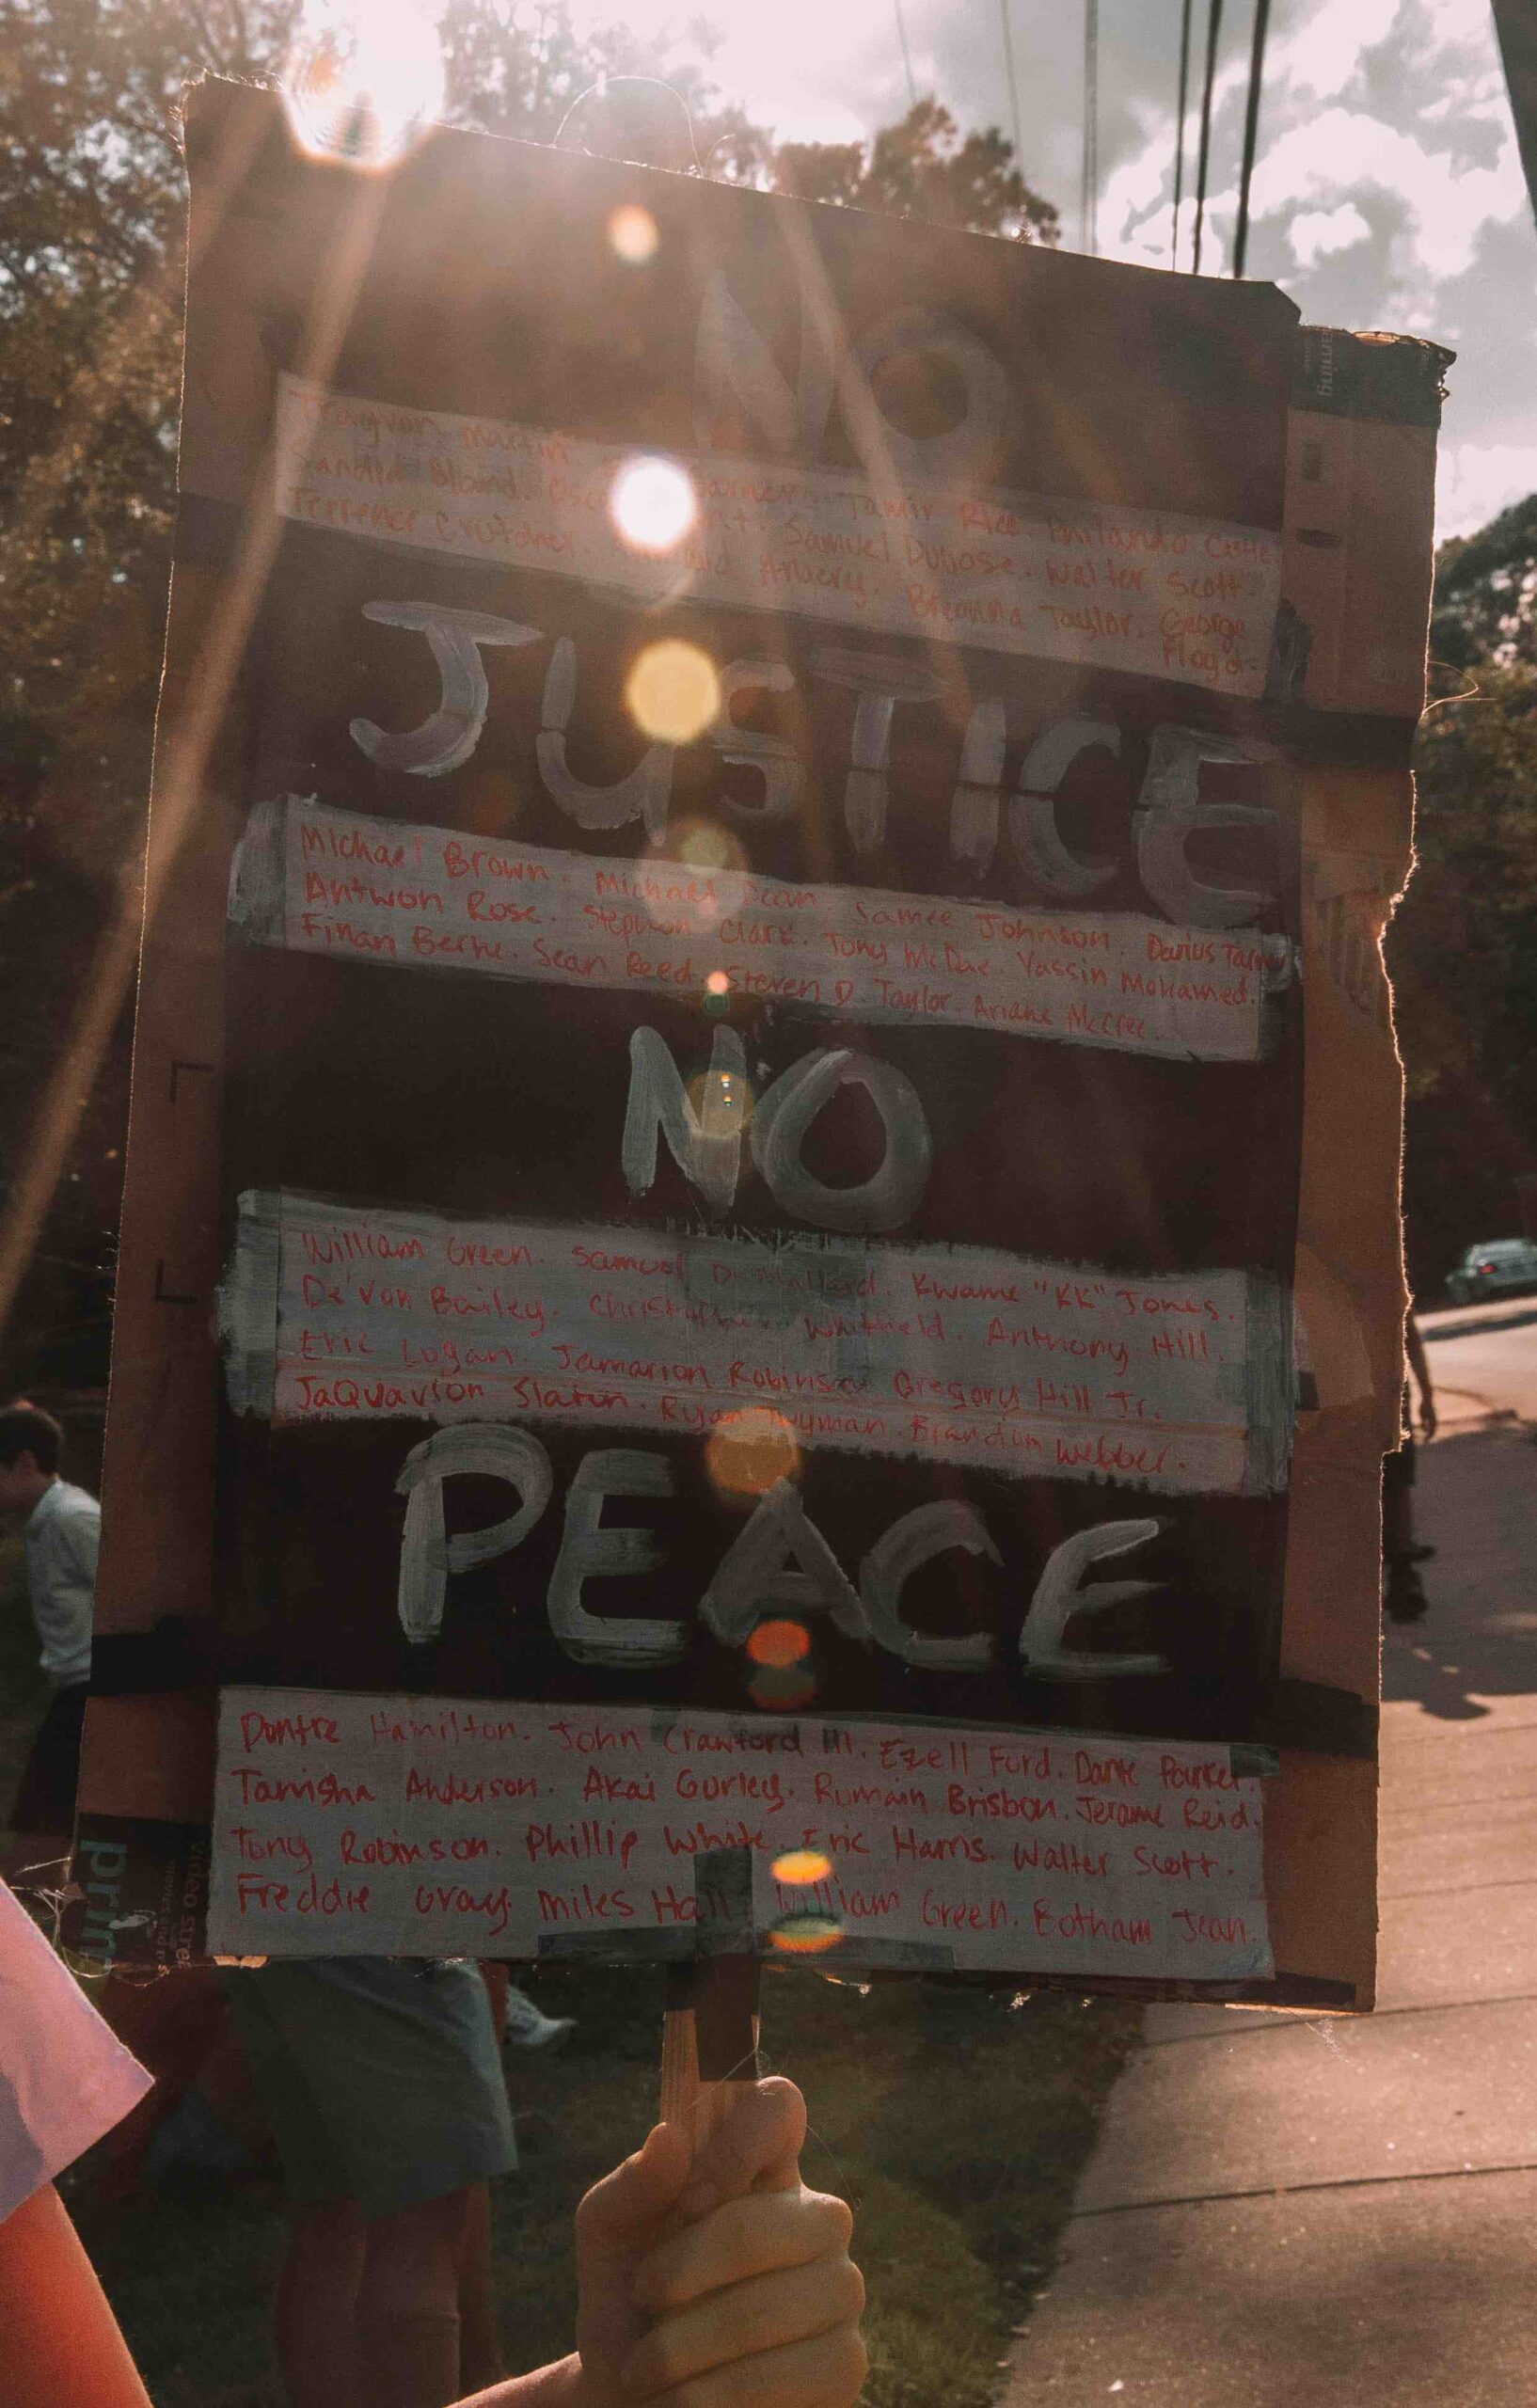 NO
Trayvon Martin. Garner. Tamir Rice. Philando Castile.
Sandra Bland. Samuel Dubose. Walter Scott.
Terrence Crutcher. Arbery. Breonna Taylor. George
Floyd.
JUSTICE
Michael Brown. Michael Dean. Samee Johnson. Darius
Antwon Rose. Stephon Clark. Tony McDae. Yassin Mohamed.
Finan Berhe. Sean Reed. Steven D. Taylor. Ariane McCree.
NO
William Green. Samuel D. Mallard. Kwame "KK" Jones.
De'Von Bailey. Christopher Whitfield. Anthony Hill.
Eric Logan. Jamarion Robinson. Gregory Hill Jr.
JaQuavion Slaton. Ryan Twyman Brandon Webber.
PEACE
Dontre Hamilton. John Crawford III. Ezell Ford. Dante Parker.
Tanisha Anderson. Akai Gurley. Rumain Brisbon. Jerame Reid.
Tony Robinson. Phillip White. Eric Harris. Walter Scott.
Freddie Gray. Miles Hall William Green. Botham Jean.